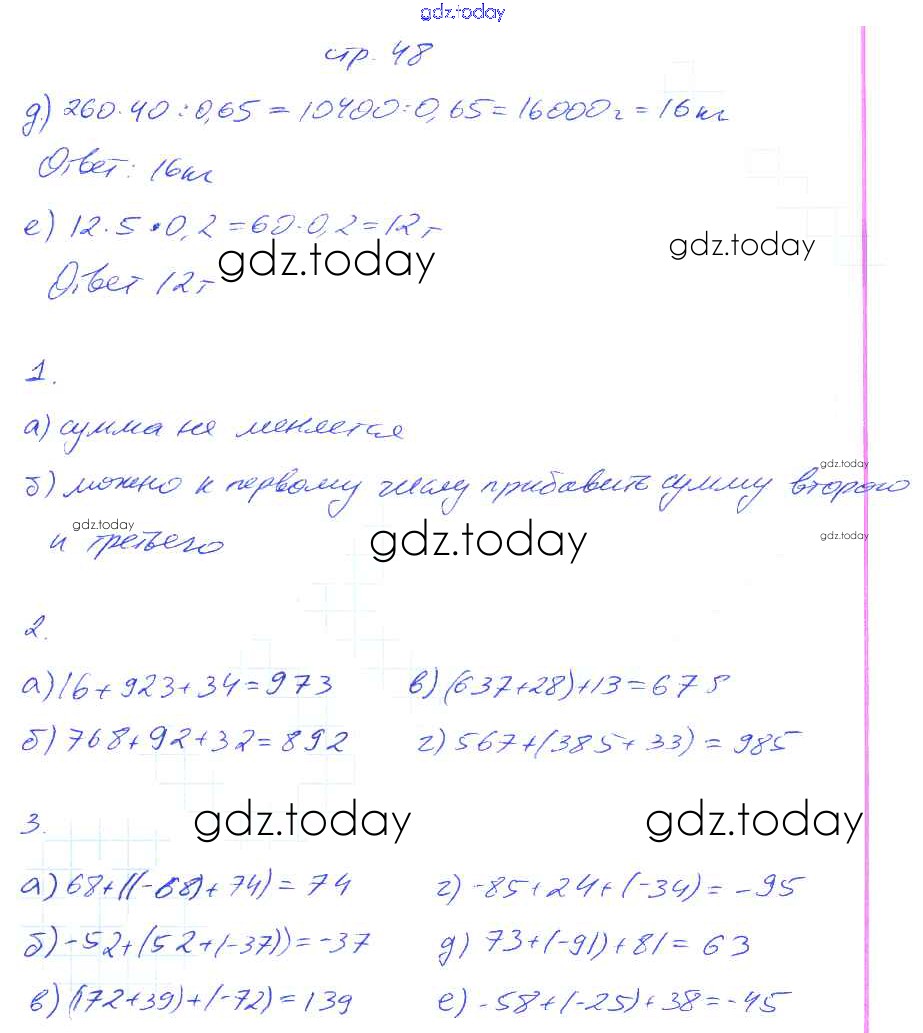 gdz.today
стр. 48
д) 260·40:0,65=10400:0,65=16000г=16кг
Ответ: 16кг
е) 12·5·0,2=60·0,2=12г
gdz.today
gdz.today
Ответ 12г
1.
а) сумма не меняется
gdz.today
б) можно к первому числу прибавить сумму второго
gdz.today
и третьего
gdz.today
gdz.today
2.
а) 16+923+34=973 в) (637+28)+13=678
б) 768+92+32=892 г) 567+(385+33)=985
3.
gdz.today
gdz.today
а) 68+((-68)+74)=74 г) -85+24+(-34)=-95
б) -52+(52+(-37))=-37 д) 73+(-91)+81=63
в) (172+39)+(-72)=139 е) -58+(-25)+38=-45